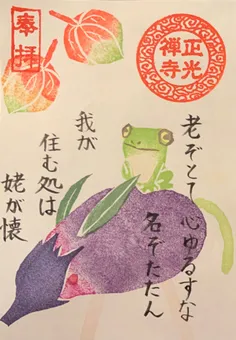 奉拝
正光
禅寺
老ぞとて
心ゆるすな
名ぞたたん
我が
住む処は
姥が懐